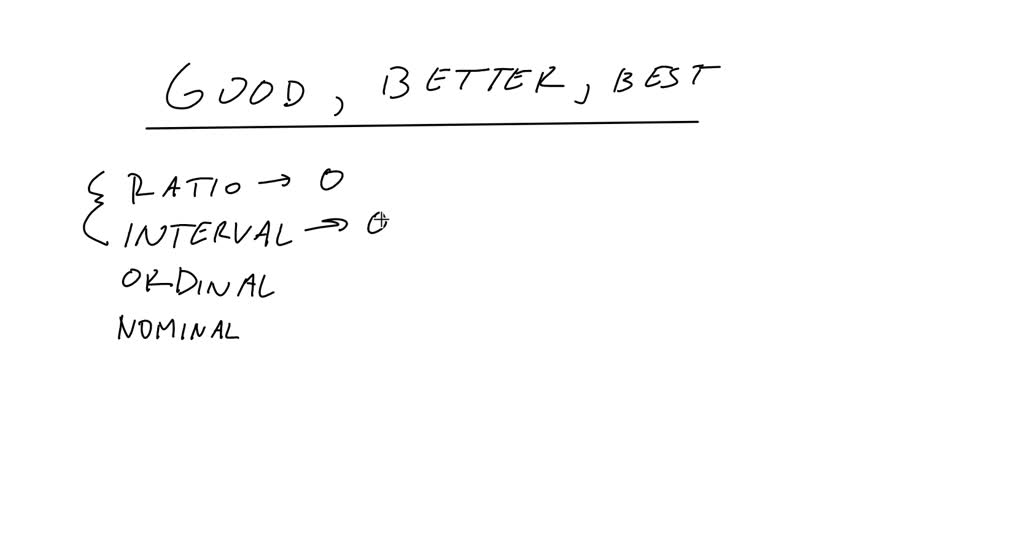 GOOD, BETTER, BEST
RATIO → 0
INTERVAL → 0
ORDINAL
NOMINAL